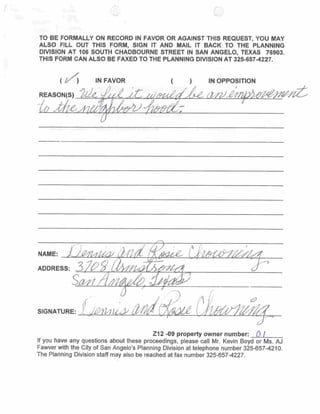 TO BE FORMALLY ON RECORD IN FAVOR OR AGAINST THIS REQUEST, YOU MAY
ALSO FILL OUT THIS FORM, SIGN IT AND MAIL IT BACK TO THE PLANNING
DIVISION AT 106 SOUTH CHADBOURNE STREET IN SAN ANGELO, TEXAS 76903.
THIS FORM CAN ALSO BE FAXED TO THE PLANNING DIVISION AT 325-657-4227.
( ✓ ) IN FAVOR ( ) IN OPPOSITION
REASON(S) We feel it would be an improvement
to the neighbor hood.
NAME: Dennis and Rosie Chowning
ADDRESS: 3708 Armstrong
San Angelo, Texas
SIGNATURE: Dennis and Rosie Chowning
Z12 -09 property owner number: 01
If you have any questions about these proceedings, please call Mr. Kevin Boyd or Ms. AJ
Fawver with the City of San Angelo's Planning Division at telephone number 325-657-4210.
The Planning Division staff may also be reached at fax number 325-657-4227.